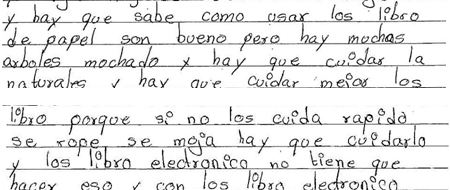 y hay que sabe como usar los libro
de papel son bueno pero hay muchas
arboles mochado x hay que cuidar la
naturales y hay que cuidar mejor los
libro porque si no los cuida rapido
se rope se moja hay que cuidarlo
y los libro electronico no tiene que
hacer eso y con los libro electronico